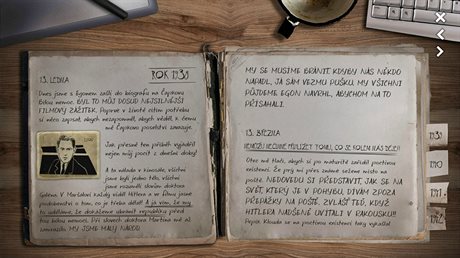 ROK 1938
13. LEDNA
Dnes jsme s Egonem zašli do biografu na Čapkovu
Bílou nemoc. BYL TO MŮJ DOSUD NEJSILNĚJŠÍ
FILMOVÝ ZÁŽITEK. Poprvé v životě cítím potřebu
si něco zapsat, abych nezapomněl, abych věděl, k čemu
mě Čapkovo poselství zavazuje.
Jak přesně ten příběh vyjádřil
nejen můj pocit z dnešní doby!
A ta nálada v kinosále, všichni
jsme byli jedno tělo, všichni
jsme rozuměli slovům doktora
Galéna. V Maršálovi každý viděl Hitlera a ve filmu jsme
podobenství o tom, co je třeba dělat! A já vím, že my
to uděláme, že dokážeme ubránit republiku před
tou bílou nemocí. Při slovech doktora Martina mě až
zamrazilo: MY JSME MALÝ NÁROD
MY SE MUSÍME BRÁNIT KDYBY NÁS NĚKDO
NAPADL, JÁ SÁM VEZMU PUŠKU. MY VŠICHNI
PŮJDEME. EGON NAVRHL, ABYCHOM NA TO
PŘÍSAHALI.
13. BŘEZNA
NEMŮŽU NEČINNĚ PŘIHLÍŽET TOMU, CO SE KOLEM NÁS DĚJE!!
Otec mě tlačí, abych si po maturitě zařídil početnou
existenci. Že prý mi přes známé sežene místo na
poště. NEDOVEDU SI PŘEDSTAVIT, JAK SE NA
SVĚT, KTERÝ JE V POHYBU, DÍVÁM ZPOZA
PŘEPÁŽKY NA POŠTĚ. ZVLÁŠŤ TEĎ, KDYŽ
HITLERA NADŠENĚ UVÍTALI V RAKOUSKU!!
Pepík Klouda se na početnou existenci taky vykašlal
1939
1940
1941
1942